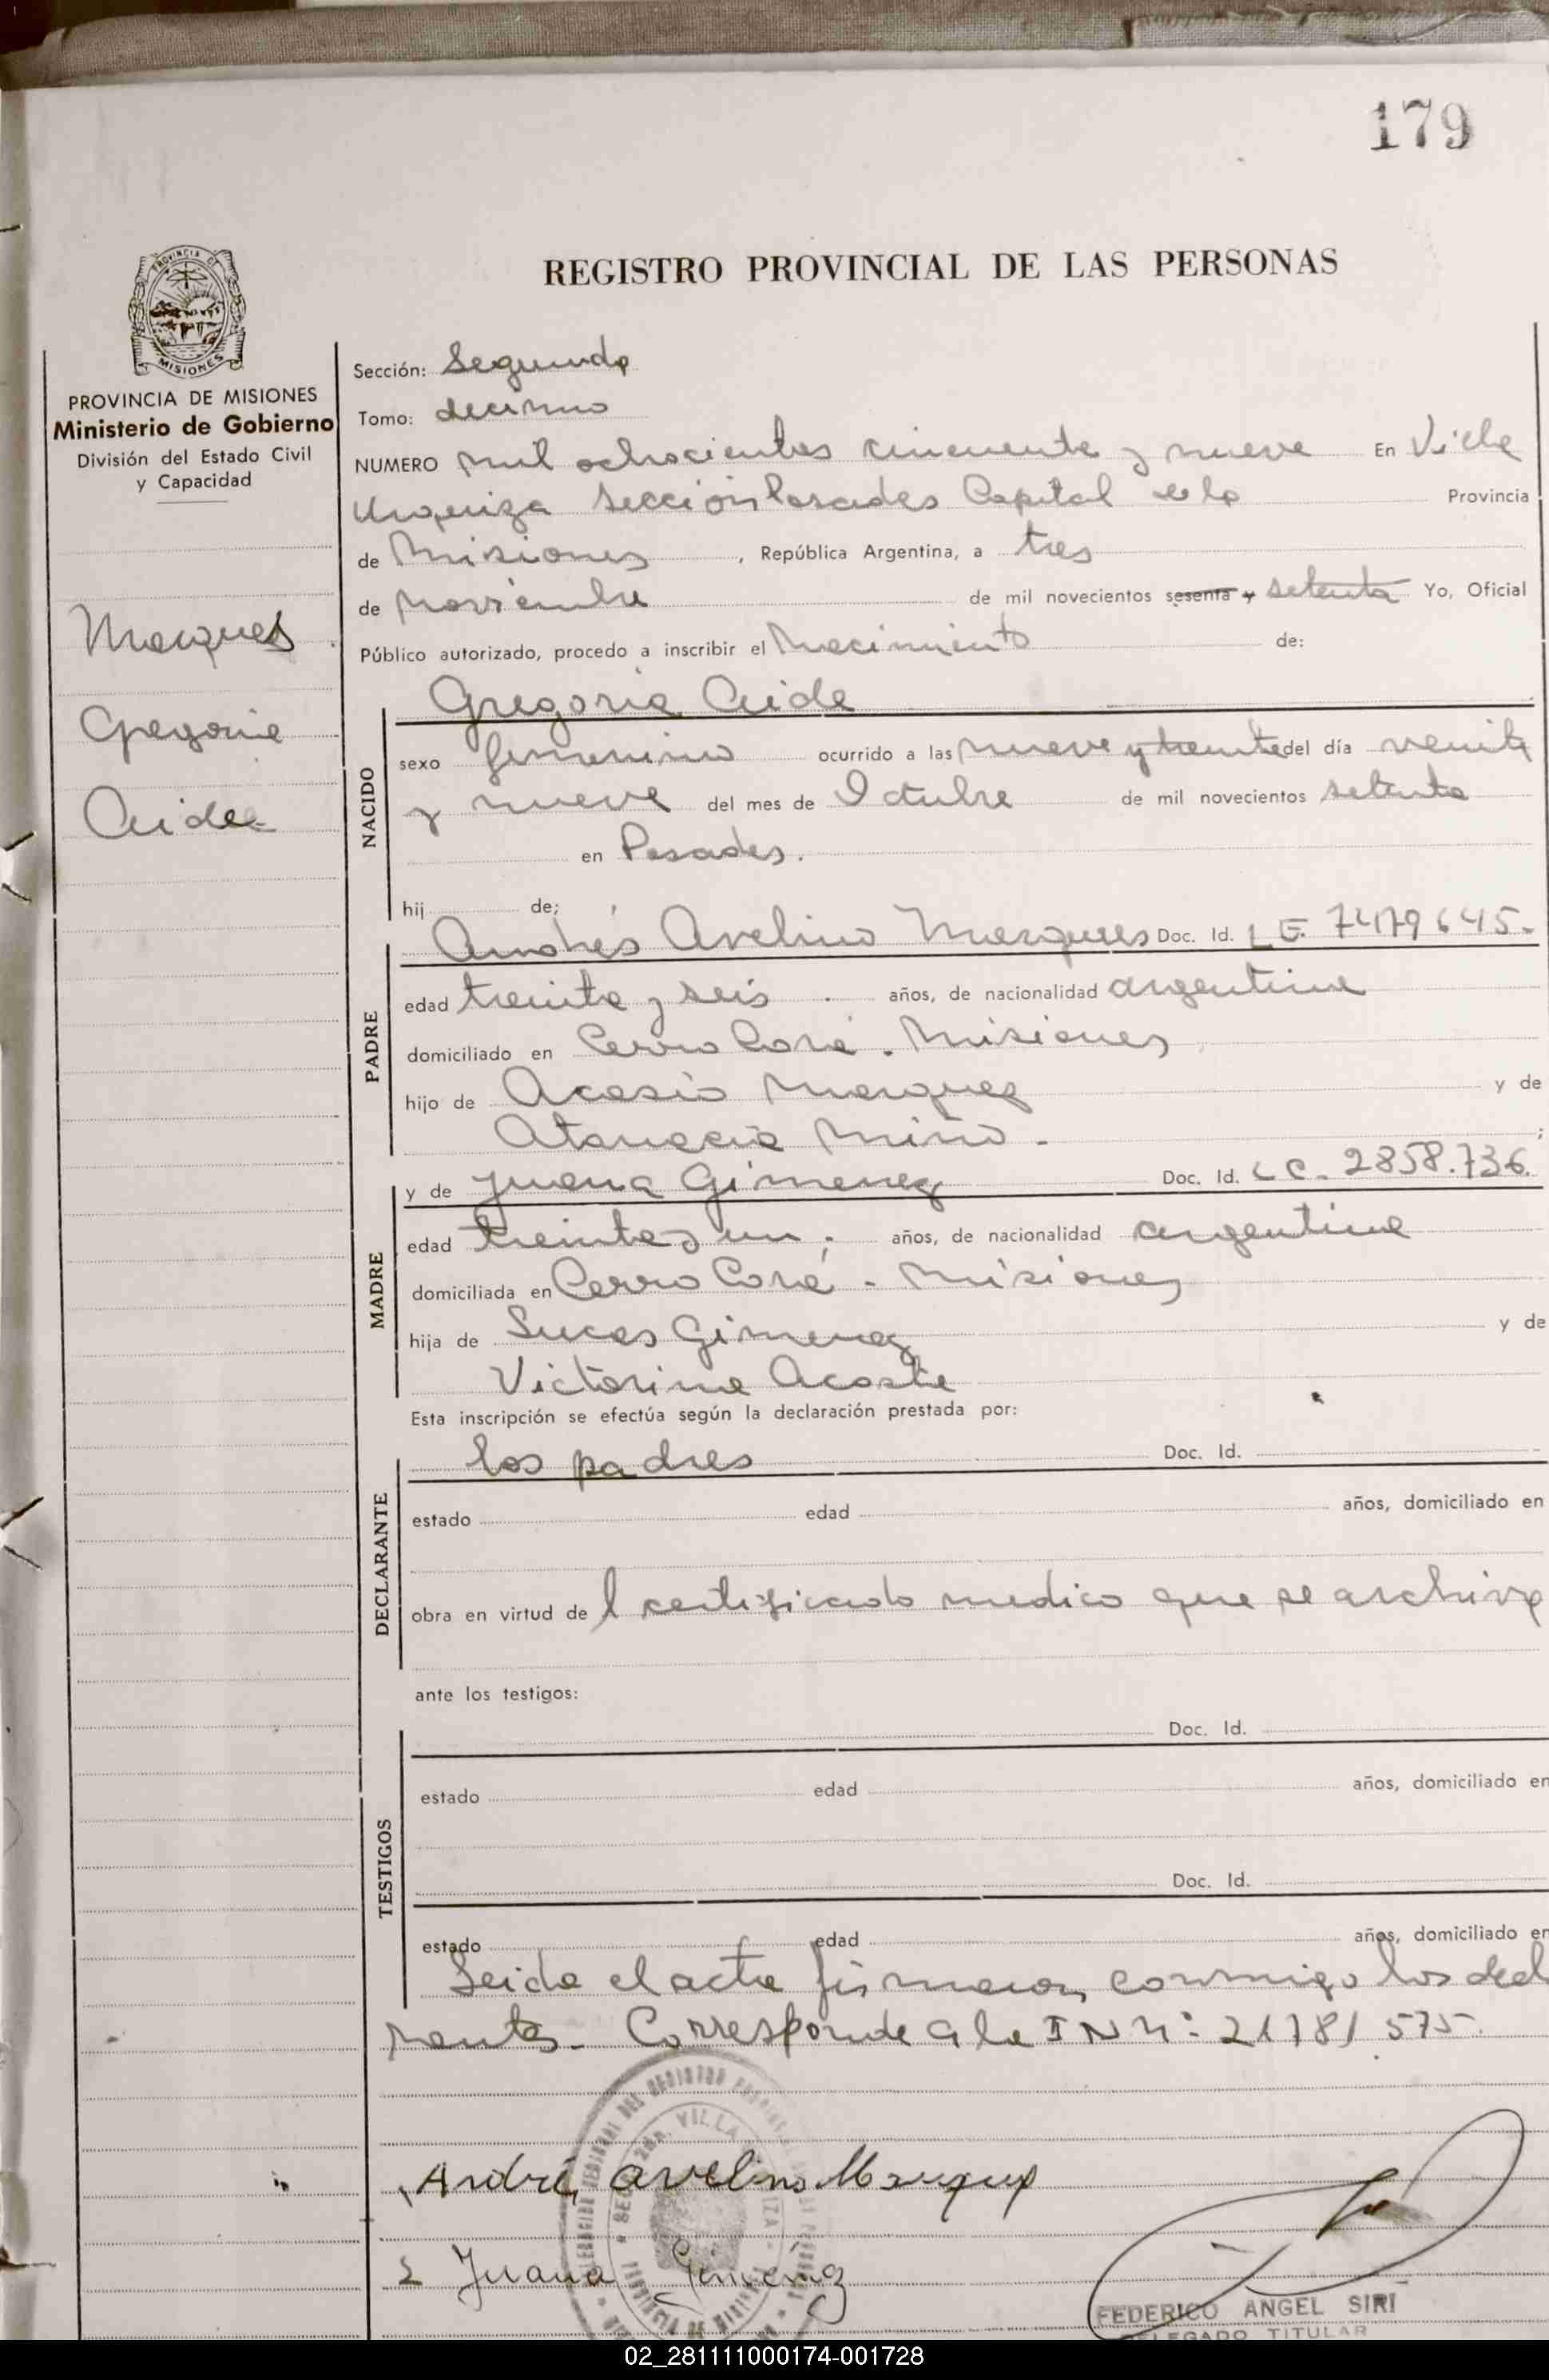 179
PROVINCIA DE MISIONES
REGISTRO PROVINCIAL DE LAS PERSONAS
PROVINCIA DE MISIONES
Ministerio de Gobierno
División del Estado Civil
y Capacidad
Marques
Gregoria
Aidee
Sección: Segunda
Tomo: decimo
NUMERO mil ochocientos cincuenta y nueve En Villa
Urquiza Sección Posadas Capital de la Provincia
de Misiones, República Argentina, a tres
de Noviembre de mil novecientos sesenta y setenta Yo, Oficial
Público autorizado, procedo a inscribir el Nacimiento de:
Gregoria Aide
NACIDO
sexo femenino ocurrido a las nueve y treinta del día veinte
y nueve del mes de Octubre de mil novecientos setenta
en Posadas.
hij de;
PADRE
Andrés Avelino Marques Doc. Id. L E. 7479645.
edad treinta y seis años, de nacionalidad argentina
domiciliado en Cerro Corá. Misiones
hijo de Acasio Marques y de
Atanacia Miño.
MADRE
y de Juana Gimenez Doc. Id. L C. 2858.736.
edad treinta y un años, de nacionalidad argentina
domiciliada en Cerro Corá - Misiones
hija de Lucas Gimenez y de
Victorina Acosta
Esta inscripción se efectúa según la declaración prestada por:
DECLARANTE
los padres Doc. Id.
estado edad años, domiciliado en
obra en virtud de l certificado medico que se archiva
ante los testigos:
TESTIGOS
Doc. Id.
estado edad años, domiciliado en
Doc. Id.
estado edad años, domiciliado en
Leida el acta firmaron conmigo los decl
rantes. Corresponde a la I N n: 21781 575.
Andrés Avelino Marques
2 Juana Gimenez
FEDERICO ANGEL SIRI
DELEGADO TITULAR
02_281111000174-001728